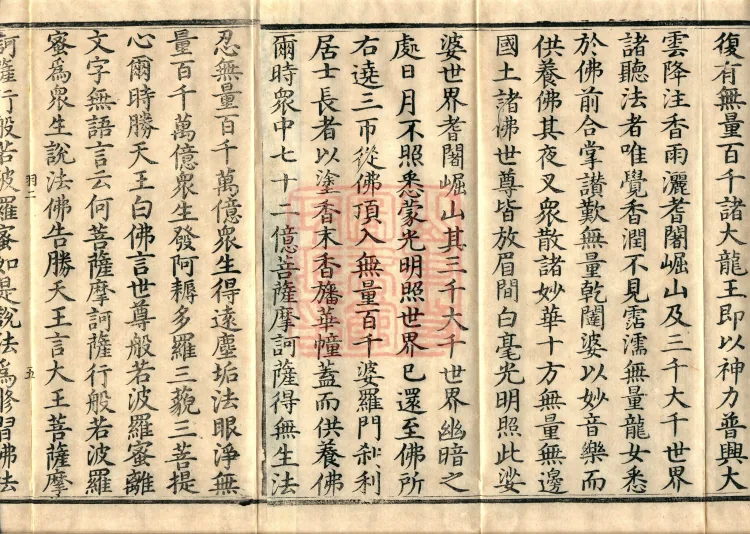 復有無量百千諸大龍王即以神力普興大
雲降注香雨灑耆闍崛山及三千大千世界
諸聽法者唯覺香潤不見霑濡無量龍女悉
於佛前合掌讚歎無量乾闥婆以妙音樂而
供養佛其夜叉衆散諸妙華十方無量無邊
國土諸佛世尊皆放眉間白毫光明照此娑
婆世界耆闍崛山其三千大千世界幽暗之
處日月不照悉蒙光明照世界已還至佛所
右遶三帀從佛頂入無量百千婆羅門刹利
居士長者以塗香末香旛華幢蓋而供養佛
爾時衆中七十二億菩薩摩訶薩得無生法
忍無量百千萬億衆生得遠塵垢法眼淨無
量百千萬億衆生發阿耨多羅三藐三菩提
心爾時勝天王白佛言世尊般若波羅蜜離
文字無語言云何菩薩摩訶薩行般若波羅
蜜爲衆生說法佛告勝天王言大王菩薩摩
羽二
五
訶薩行般若波羅蜜如是說法爲修習佛法